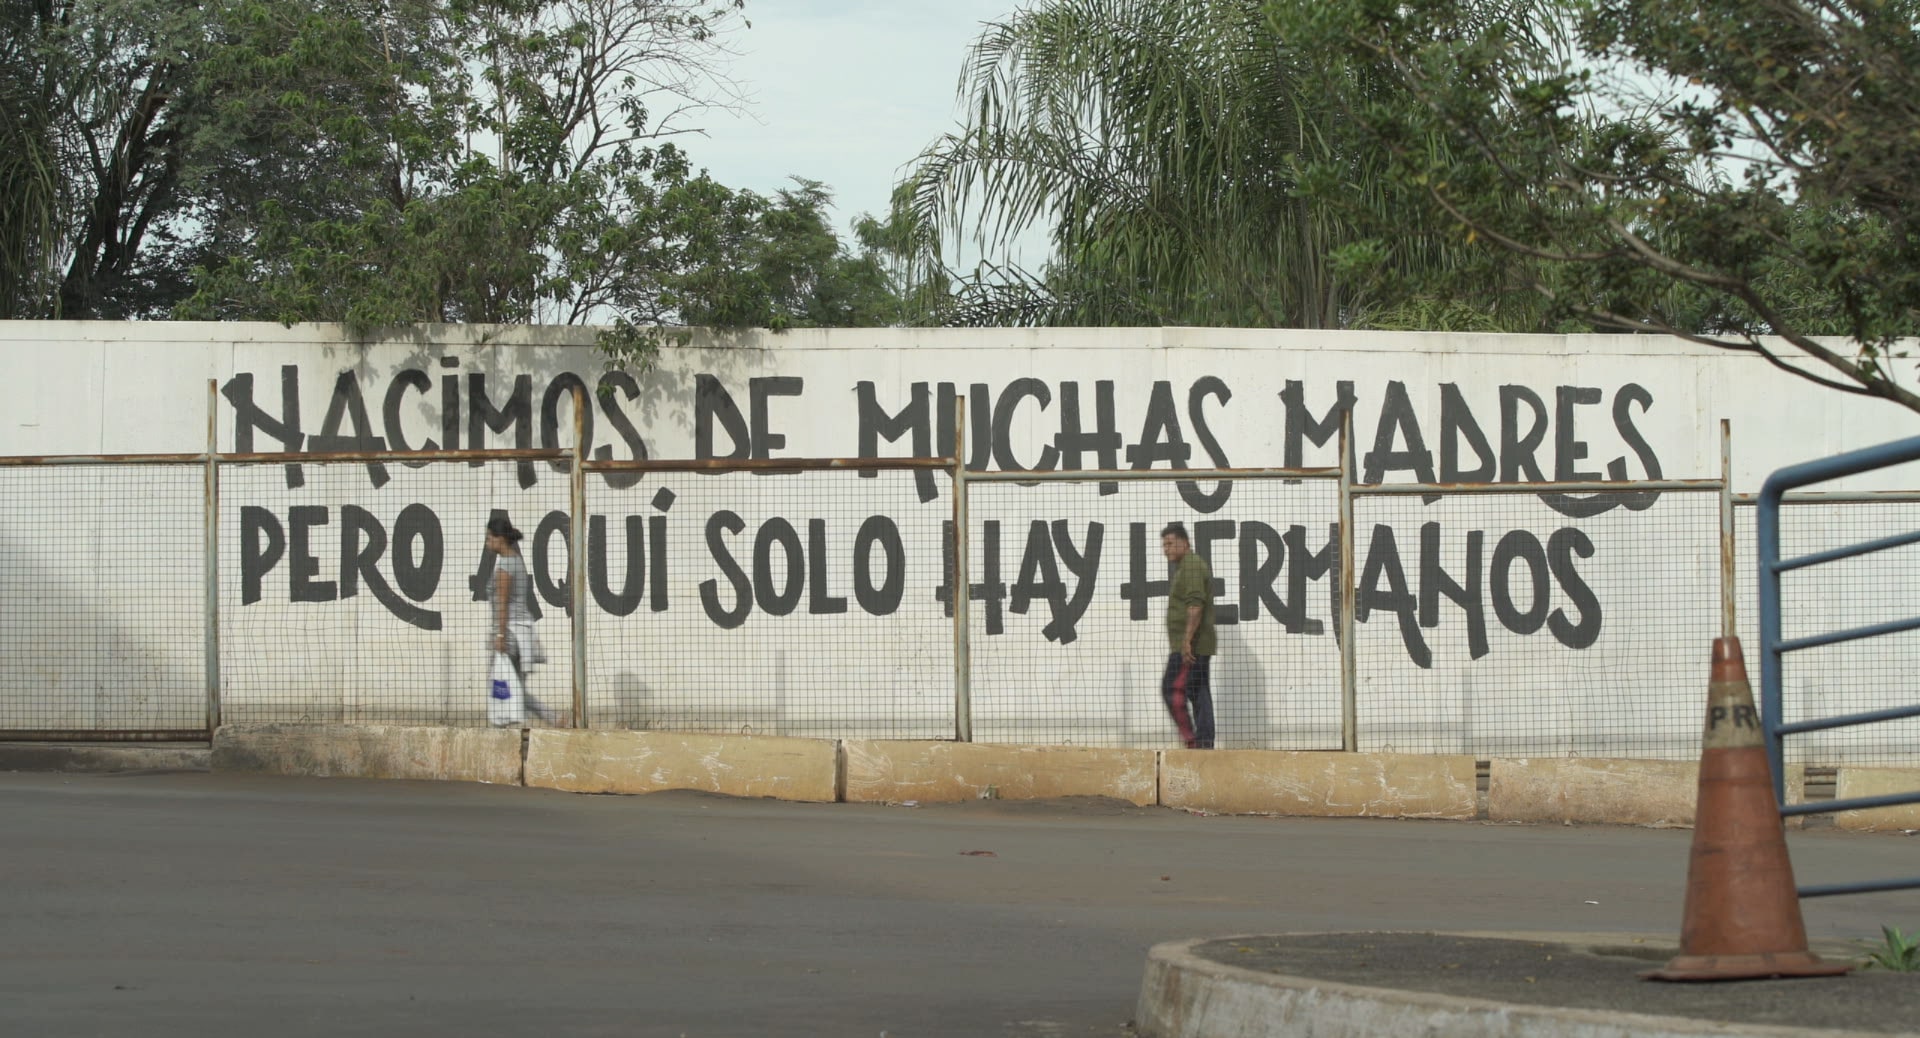 NACIMOS DE MUCHAS MADRES
PERO AQUÍ SOLO HAY HERMANOS
PR